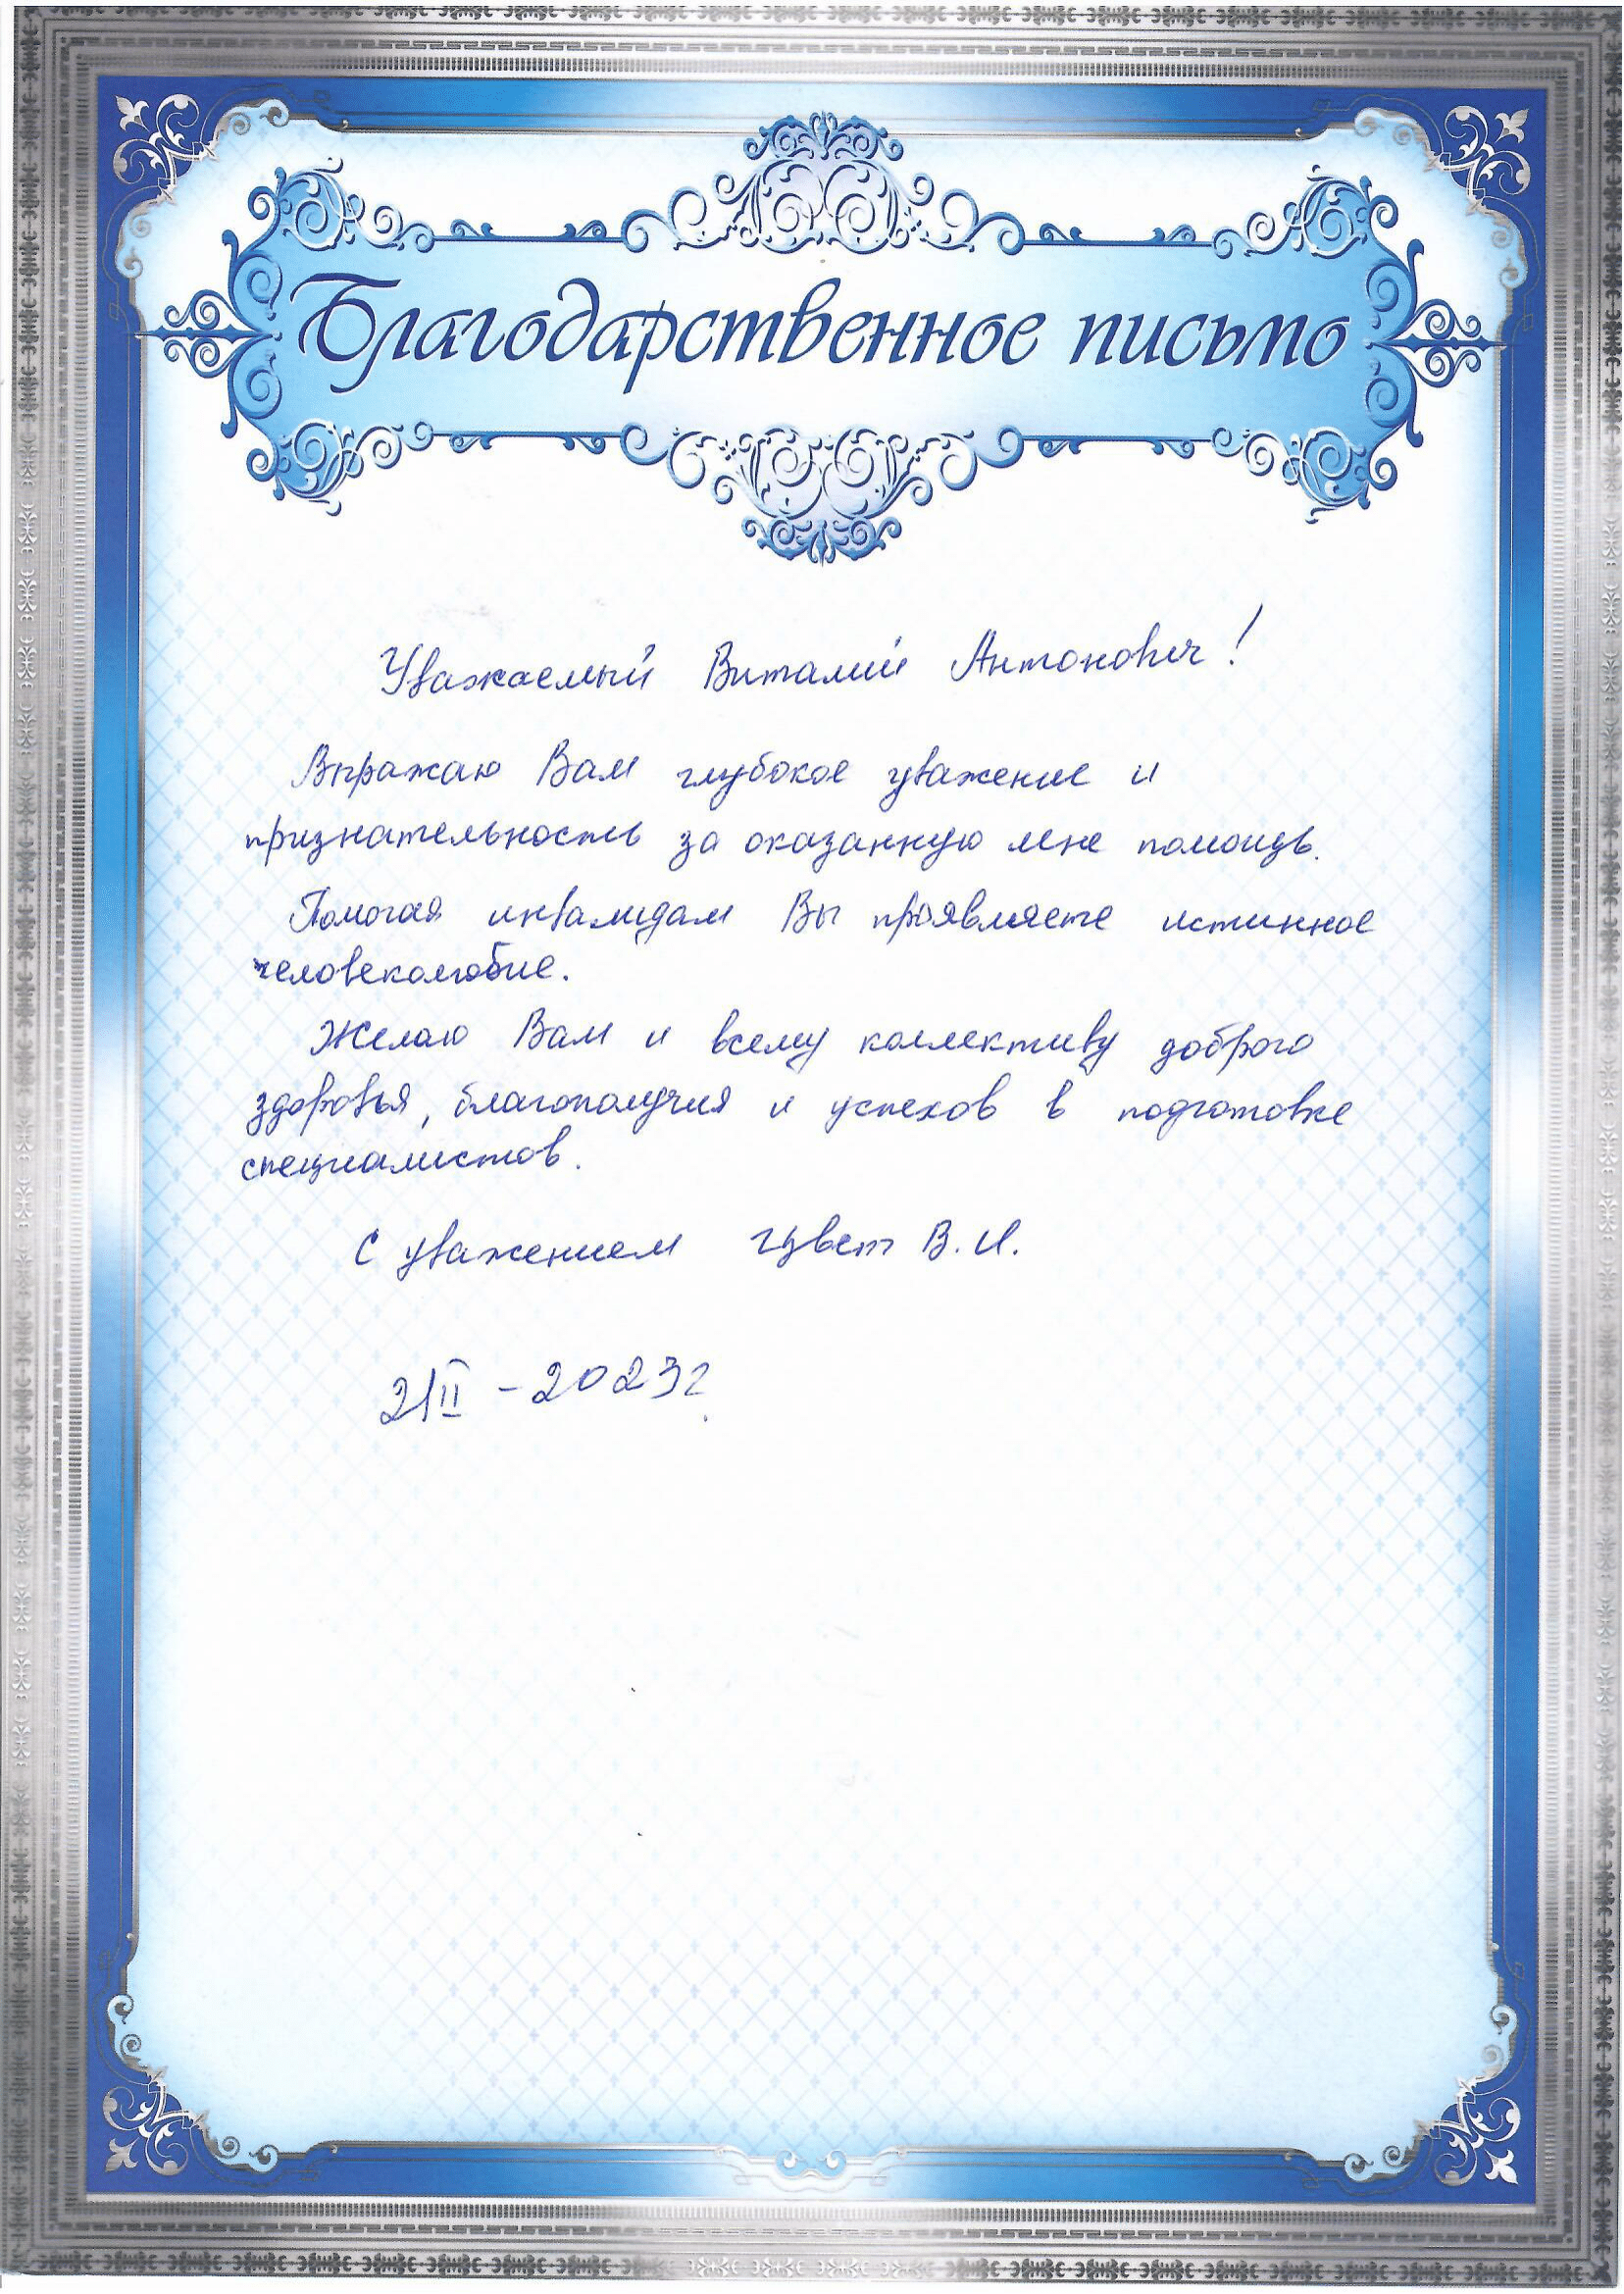 Благодарственное письмо
Уважаемый Виталий Антонович!
Выражаю Вам глубокое уважение и
признательность за оказанную мне помощь.
Помогая инвалидам Вы проявляете истинное
человеколюбие.
Желаю Вам и всему коллективу доброго
здоровья, благополучия и успехов в подготовке
специалистов.
С уважением Цвет В.И.
21 II - 2023г.